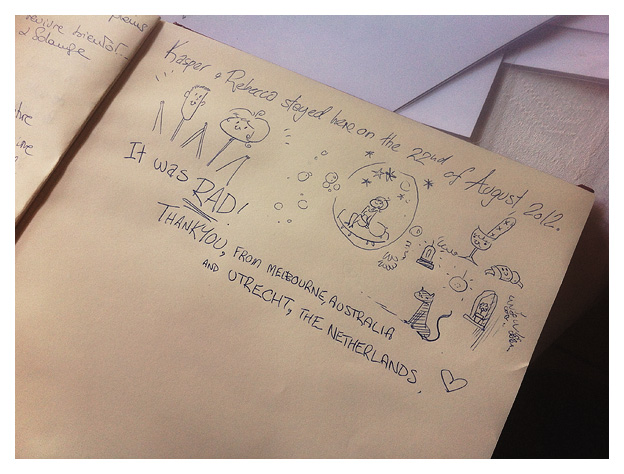 Kasper & Rebecca stayed here on the 22nd of August 2012.
It was RAD!
THANKYOU, FROM MELBOURNE, AUSTRALIA
AND UTRECHT, THE NETHERLANDS,